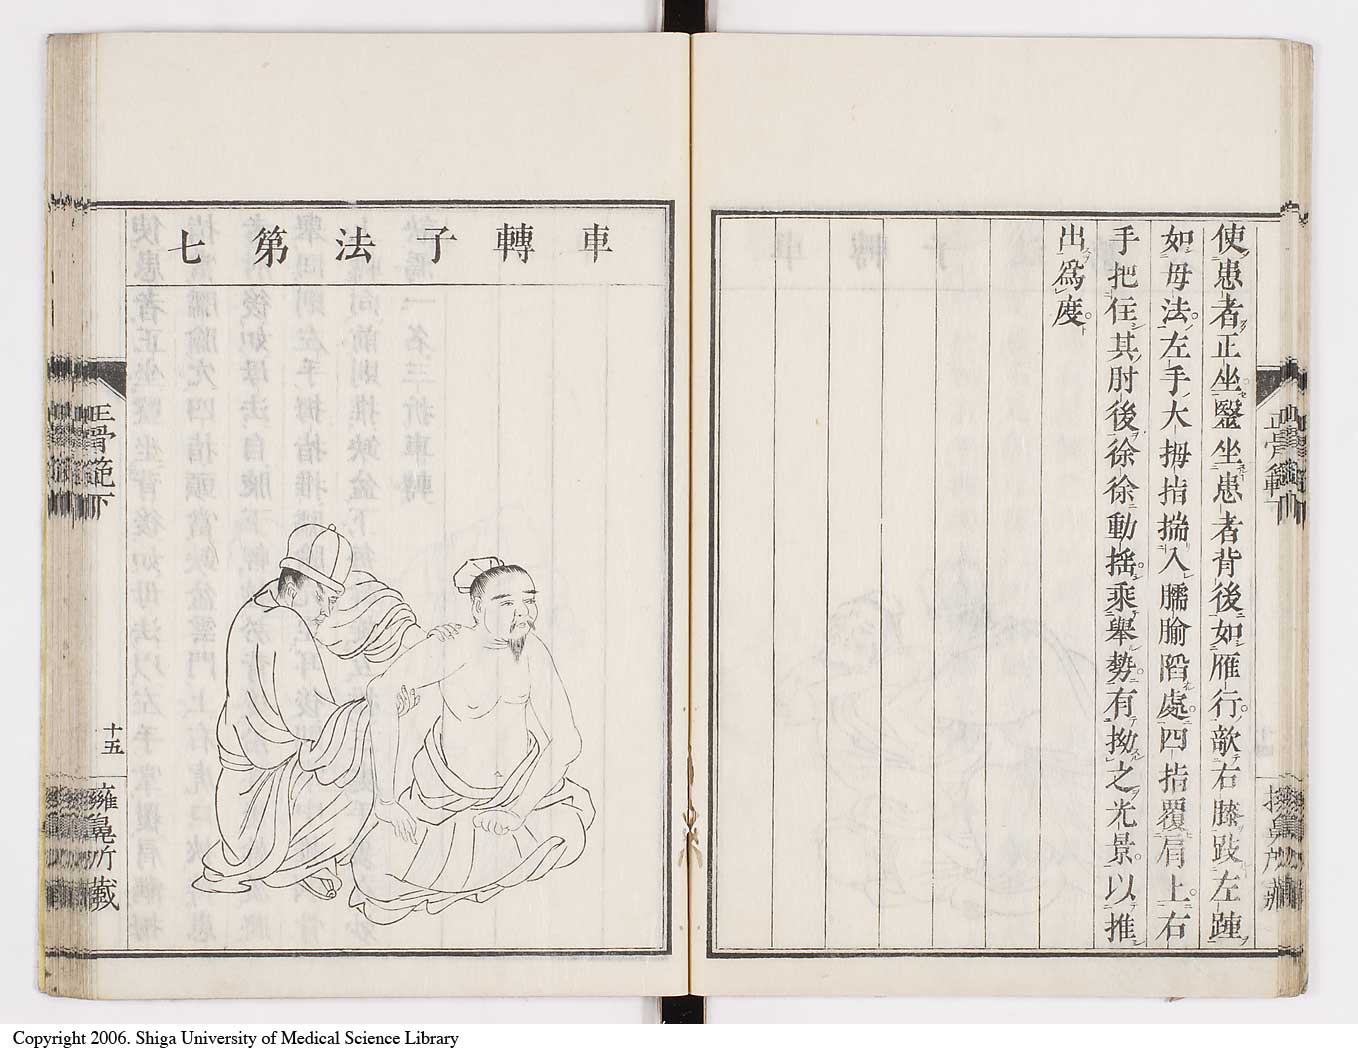 使患者正坐醫坐患者背後如雁行敧右膝跂左踵
如母法左手大拇指揣入臑腧陷處四指覆肩上右
手把住其肘後徐徐動搖乘舉勢有拗之光景以推
出爲度
車轉子法第七
正骨範下
十五
擁鼻所藏
Copyright 2006. Shiga University of Medical Science Library